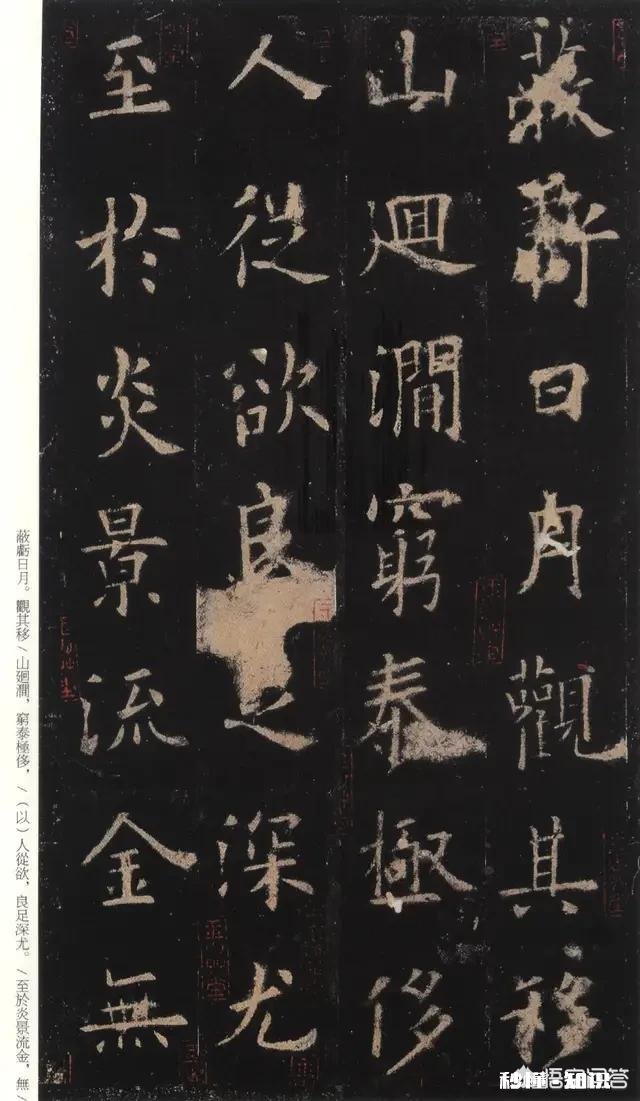 蔽虧日月觀其移
山迴澗窮泰極侈
人從欲良足深尤
至於炎景流金無
蔽虧日月。觀其移/山廻澗，窮泰極侈，/（以）人從欲，良足深尤。/至於炎景流金，無/
悟空问答
秒懂·知识